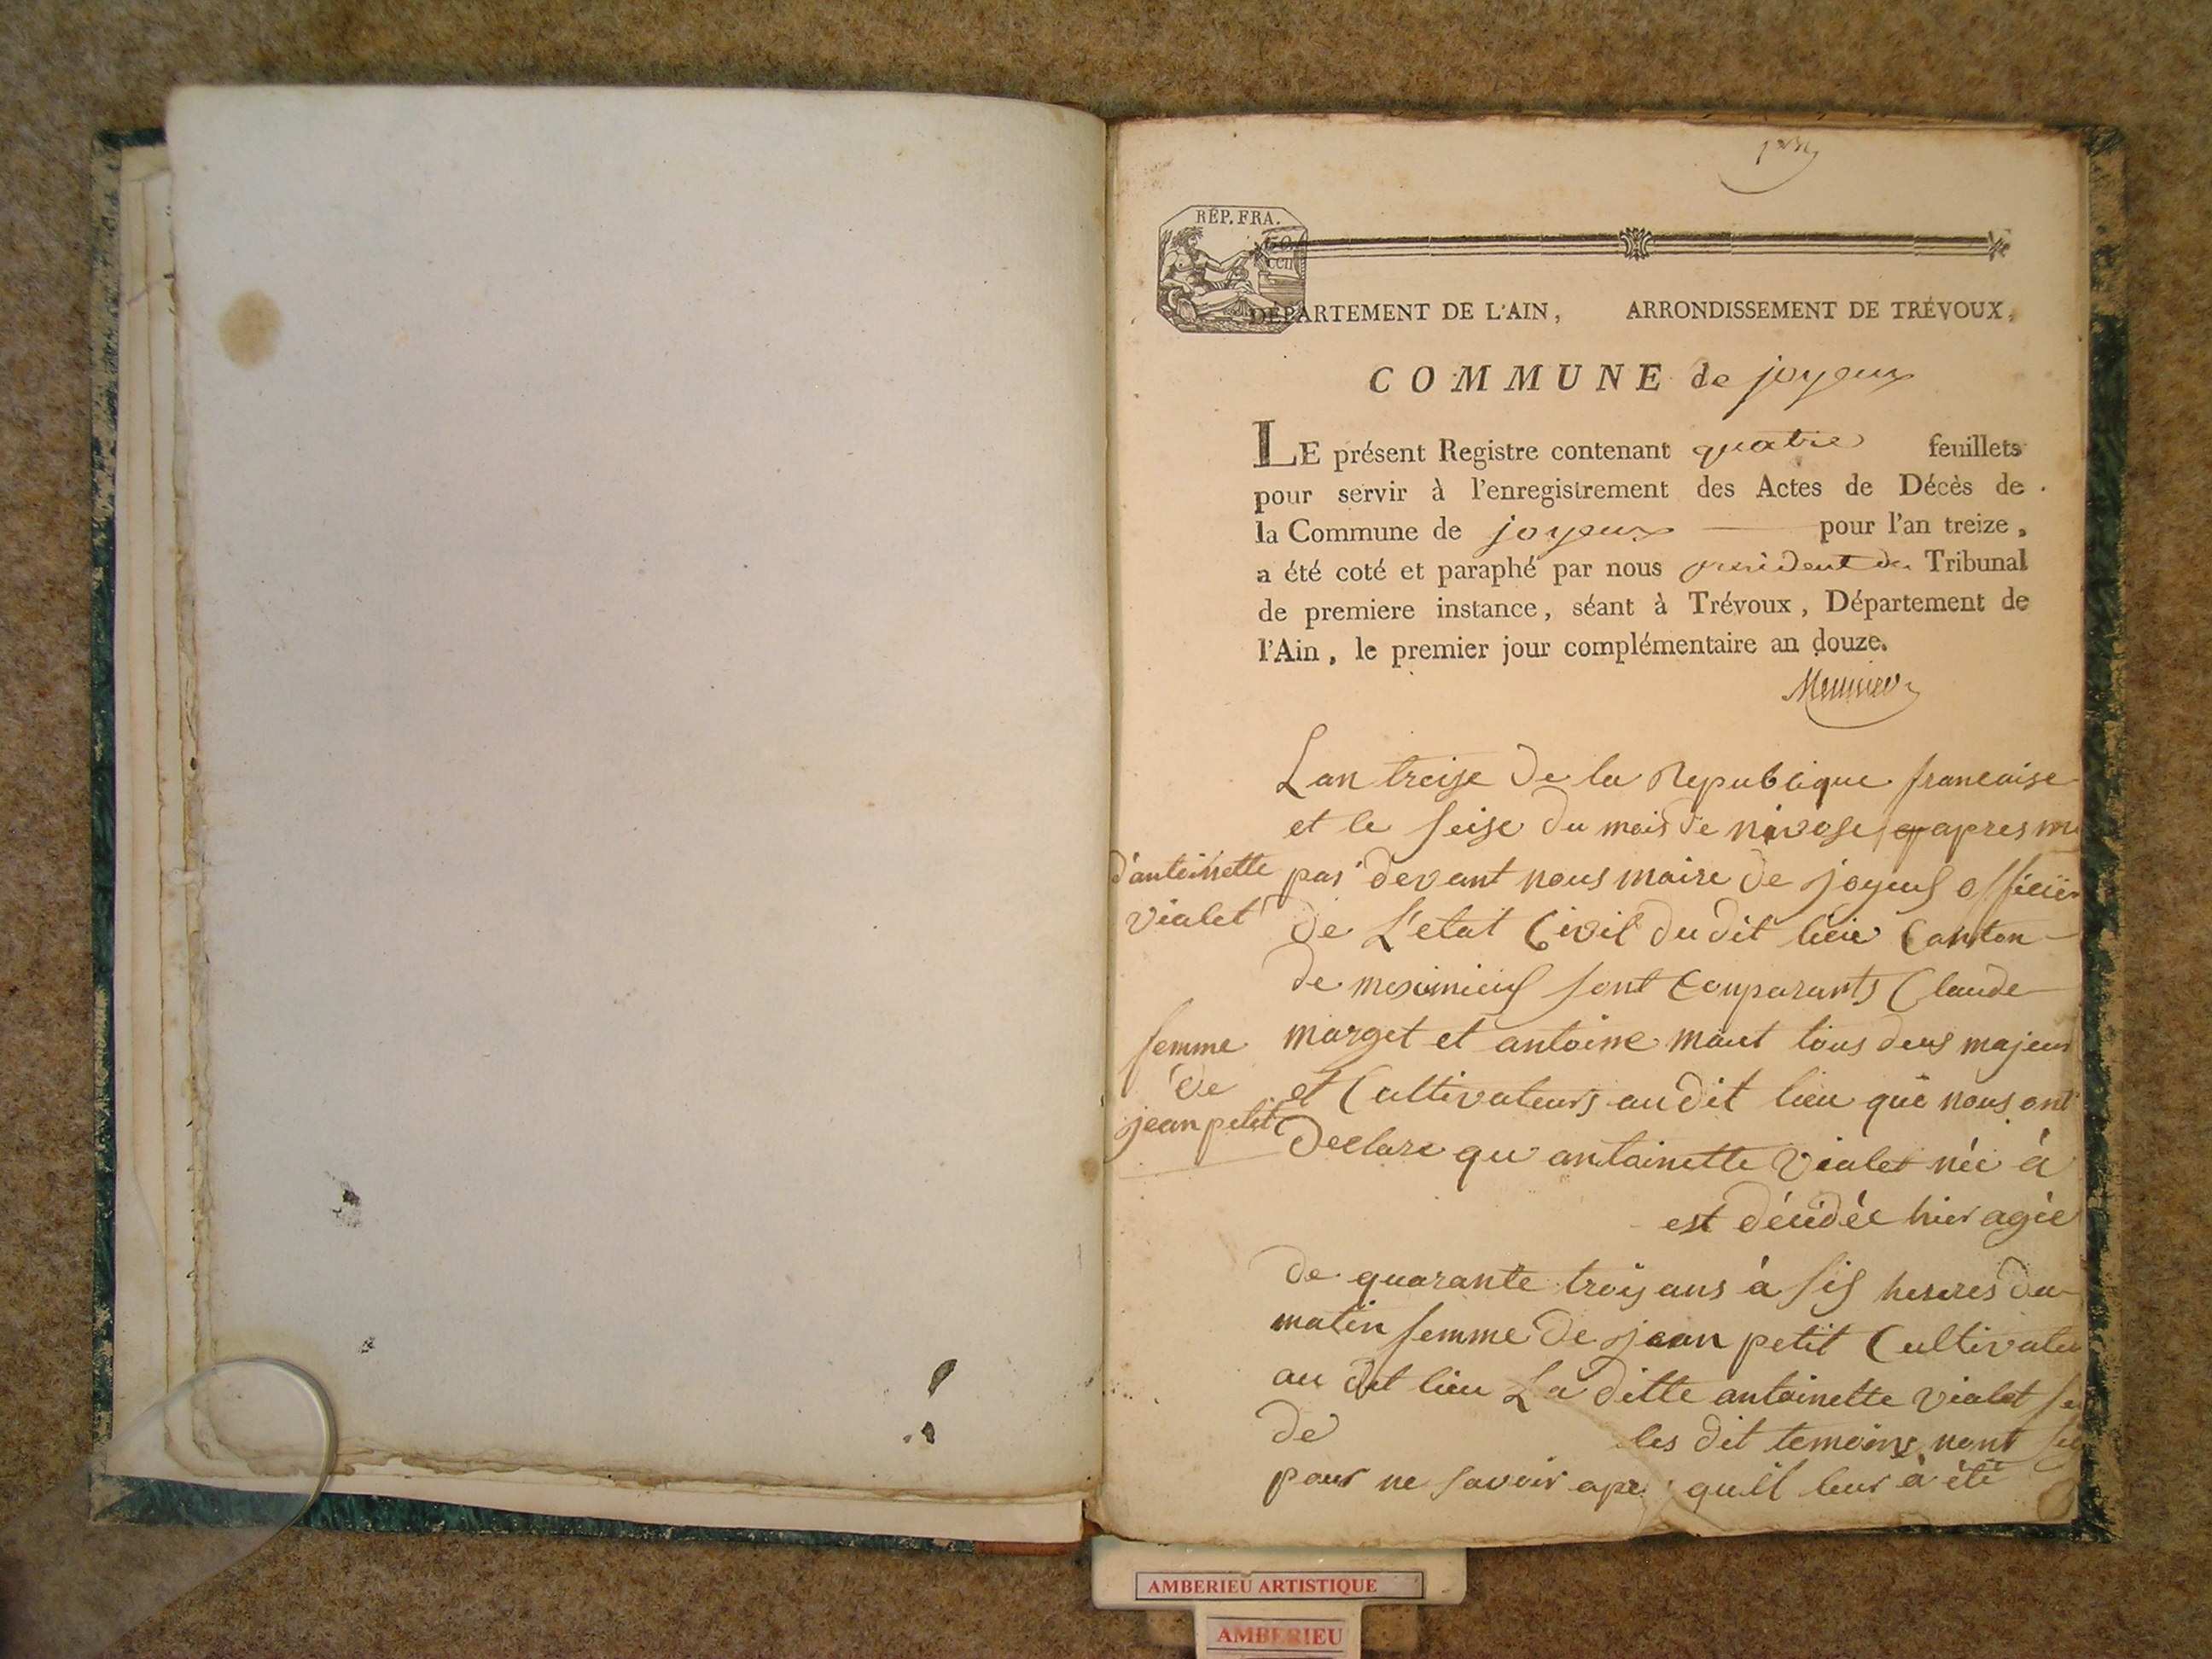 RÉP. FRA.
50
cen
DÉPARTEMENT DE L'AIN, ARRONDISSEMENT DE TRÉVOUX,
COMMUNE de joyeux
LE présent Registre contenant quatre feuillets
pour servir à l'enregistrement des Actes de Décès de
la Commune de joyeux pour l'an treize,
a été coté et paraphé par nous président du Tribunal
de premiere instance, séant à Trévoux, Département de
l'Ain, le premier jour complémentaire an douze.
Lan treise de la Republique francaise
et le seise du mois de nivose apres
d'antoinette
vialet
par devant nous maire de joyeus officier
de L'etat Civil du dit lieu Canton
de meximieus sont Comparants Claude
femme
de
jean petit
marget et antoine maut tous deus majeur
et Cultivateurs au dit lieu qui nous ont
declare qu antoinette vialet née à
est décédée hier agée
de quarante trois ans à sis heures du
matin femme de jean petit Cultivateu
au dit lieu La ditte antoinette vialet
de les dit temoins nont
pour ne savoir quil leur à été
AMBERIEU ARTISTIQUE
AMBERIEU